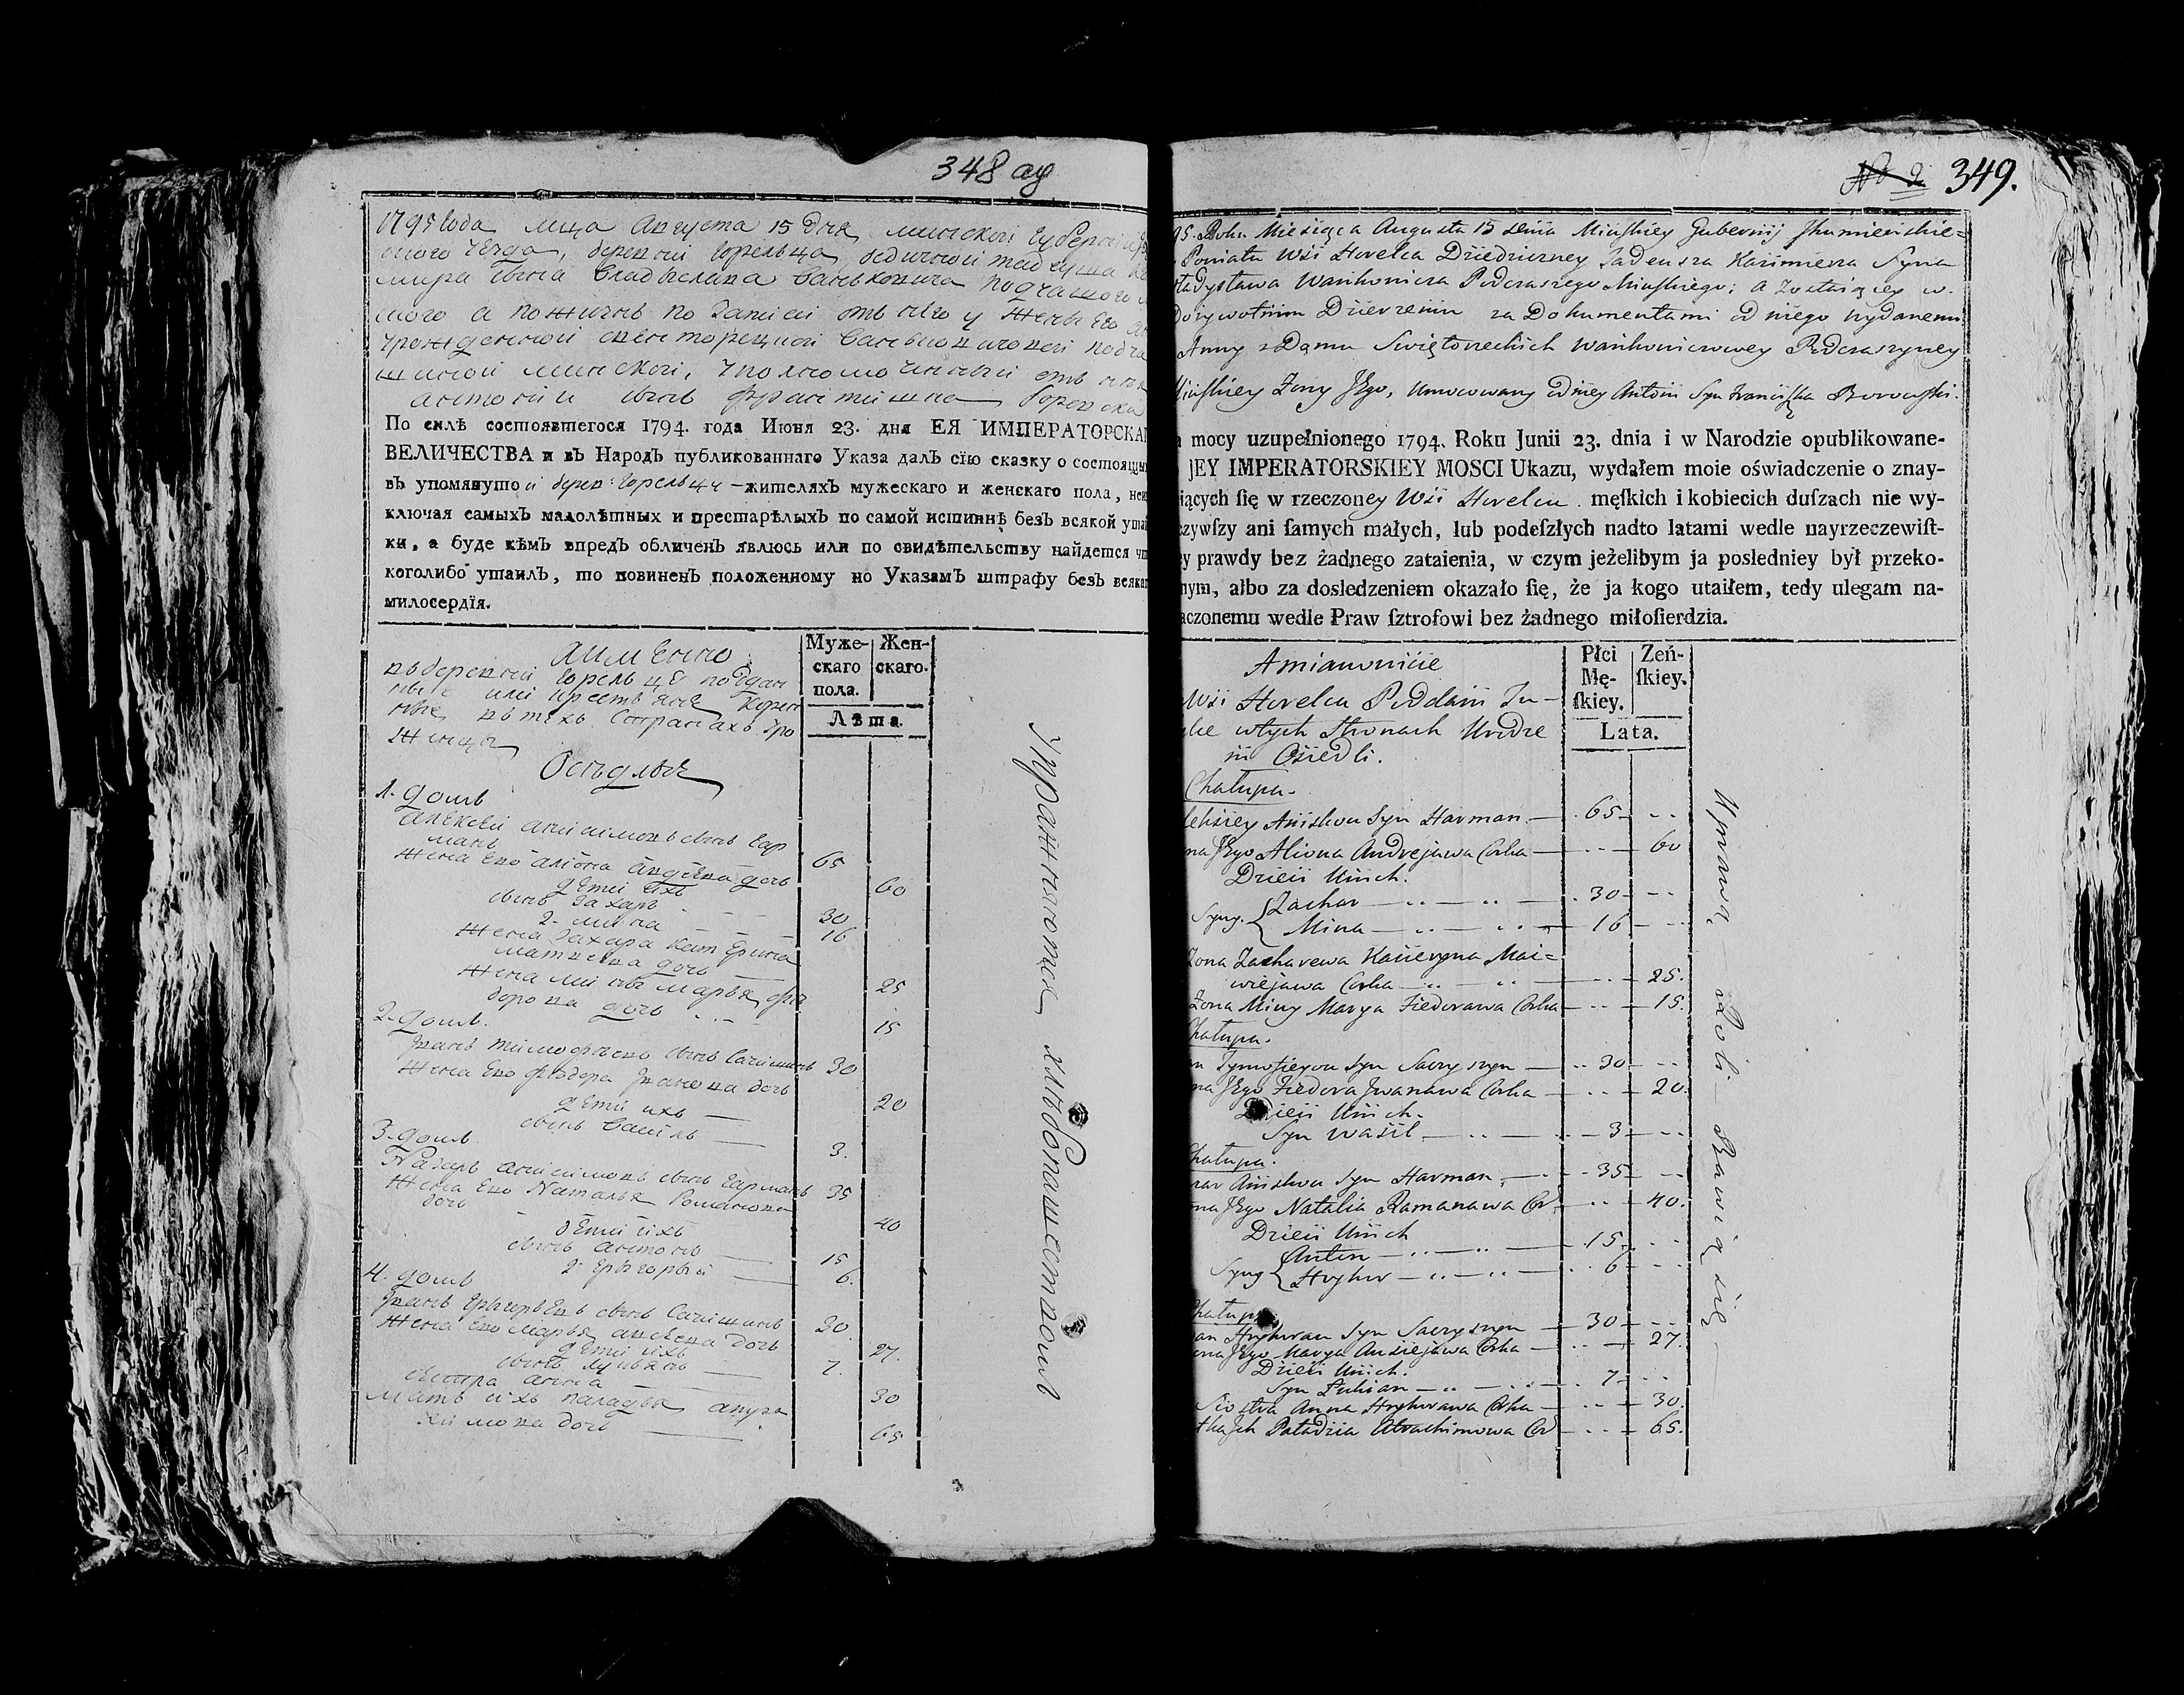 348 ау
1795 года мца Августа 15 дня минской губерній
ского уезда, деревни Горельца, Тадеуша
мира сына Владислава Ваньковича подчашого
ского а пожизнь по записи отъ него у жены его
урожденной Свенторецкой Ваньковичовой подча
шиной минской, уполномоченный отъ нея
Антоній сынъ Францишка Боровска
По силѣ состоявшегося 1794. года Июня 23. дня ЕЯ ИМПЕРАТОРСКАГ
ВЕЛИЧЕСТВА и въ НародЪ публикованнаго Указа далЪ сїю сказку о состоящихъ
въ упомянутой дерев: Горельце жителяхЪ мужескаго и женскаго пола, неис
ключая самыхЪ малолѣтныхъ и престарѣлыхЪ по самой истиннѣ безЪ всякой утай
ки, а буде кѣмЪ впредЪ обличенЪ явлюсь или по свидѣтельству найдется чт
коголибо утаилЪ, то повиненЪ положенному по УказамЪ штрафу безЪ всякаг
милосердїя.
Аименно
въ деревни Горельце поддан
ные или крестьяне Корен
ные въ техъ Странахъ Уро
женцы
Оседлые
Муже-
скаго
пола.
Жен-
скаго.
Лѣта.
1. домъ
Алексей Анисимовъ сынъ Гар
манъ 65
жена Его Алiона Андѣева дочь 60
дети ихъ
сынъ Захаръ 30
2. Мина 16
жена Захара Катерина
Матвеева дочь 25
жена Мины Марья Фе
дорова дочь 15
2. домъ.
Иванъ Тимофѣевъ сынъ Сачишинъ 30
жена Его Фіодора Иванова дочь 20
дети ихъ
сынъ Василь 3.
3. домъ
Назаръ Анисимовъ сынъ Гарманъ 35
жена Его Наталья Романова
дочь 40
дети ихъ
сынъ Антонъ 15
2. Григорый 6.
4. домъ
Иванъ Григорьевъ сынъ Сачишинъ 30
жена Его Марья Анѣева дочь 27.
дети ихъ
сынъ Лукьянъ 7.
сестра Анна 30
Мать ихъ Паладья Апра
химова дочь 65
Упражняются хлѣбопашествомъ
№ 2 349.
95. Roku Miesiąca Augusta 15 dnia Mińskiey Gubernij Jhumieńskie=
Powiatu Wsi Horelca Dziedziczney Tadeusza Kazimierza Syna
ładysława Wańkowicza Podczaszego Mińskiego; a Zostaiącey w.
dożywotnim Dzierżeniu za Dokumentami od niego wydanemi
Anny z Domu Swiętorzeckich Wańkowiczowey Podczaszyney
ińskiey Żony Jego, Umocowany od niey Antoni Syn Franciszka Borowski.
mocy uzupełnionego 1794. Roku Junii 23. dnia i w Narodzie opublikowane-
JEY IMPERATORSKIEY MOSCI Ukazu, wydałem moie oświadczenie o znay-
iących ſię w rzeczoney Wsi Horelcu męſkich i kobiecih duſzach nie wy-
czywſzy ani ſamych małych, lub podeſzłych nadto latami wedle nayrzeczewiſt-
y prawdy bez żadnego zataienia, w czym jeżelibym ja posledniey był przeko-
nym, albo za dosledzeniem okazało ſię, że ja kogo utaiłem, tedy ulegam na-
aczonemu wedle Praw ſztrofowi bez żadnego miłoſierdzia.
Amianowicie
Wsi Horelcu Poddani Lu-
bie wtych Stronach Urodze
ni Osiedli.
Płci
Mę-
ſkiey.
Zeń-
ſkiey.
Lata.
Chałupa.
leksiey Anishou Syn Harman 65
na Jego Aliona Andrejawa Corka 60
Dzieci Unich.
Syny. Zachar 30
Mina 16
Zona Zacharewa Kacieryna Mai=
wiejawa Corka 25.
Zona Miny Marya Fiedorawa Corka 15.
Chałupa.
n Tymofieyou Syn Saczyszyn 30
na Jego Fiedora Jwanawa Corka 20.
Dzieci Unich.
Syn Wasil 3
Chałupa.
zar Anishou Syn Harman 35
na Jego Natalia Ramanawa Cor 40.
Dzieci Unich
Syny Anton 15
Hryhor 6
Chałupa
an Hryhorau Syn Saczyszyn 30
ona Jego Marya Ausiejawa Corka 27.
Dzieci Unich.
Syn Łukian 7
Siostra Anna Hryhorawa Corka 30.
tka Jch Paładzia Abrachimowa Cor 65.
Uprawą Roli Bawią się